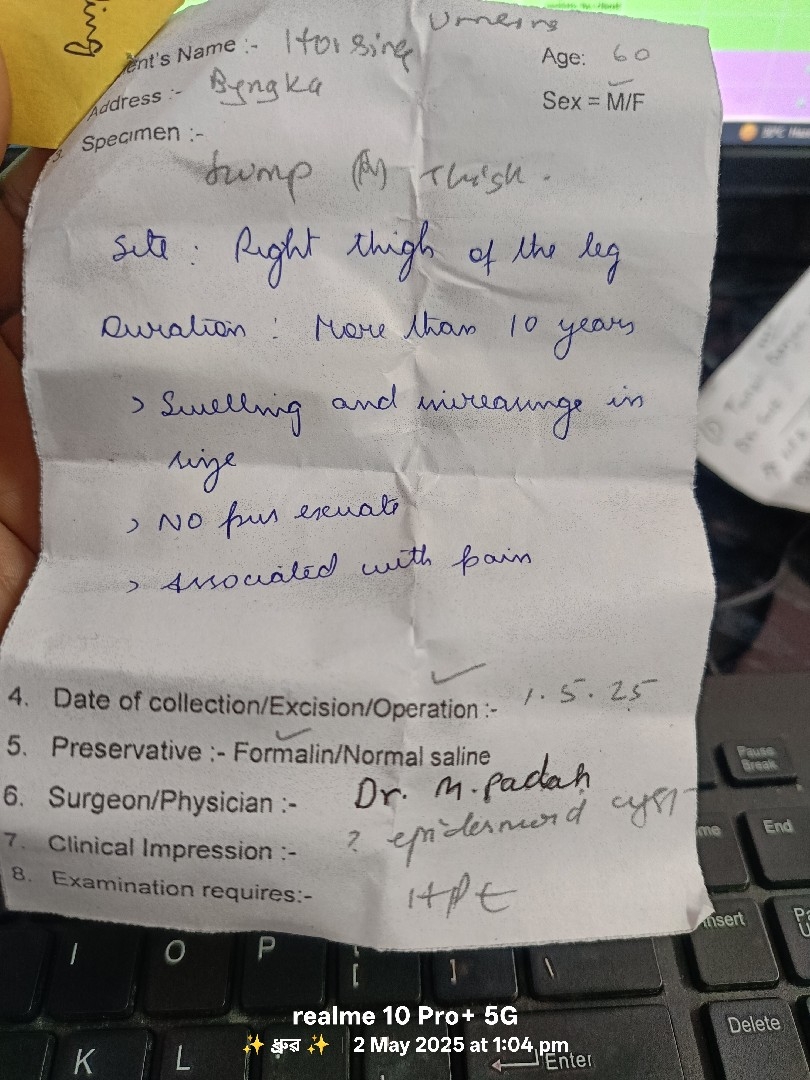 ing
Urneins
ent's Name :- Horsing
Age: 60
Address :- Byngka
Sex = M/F
3. Specimen :-
Lump (R) Thigh.
Site : Right thigh of the leg
Duration : More than 10 years
> Swelling and increasinge in
size
> NO pus exuate
> Associated with pain
4. Date of collection/Excision/Operation :- 1.5.25
5. Preservative :- Formalin/Normal saline
6. Surgeon/Physician :- Dr. M. Padah
7. Clinical Impression :- ? epidermoid cyst
8. Examination requires:- HPE
Pause
Break
me
End
Insert
Delete
Enter
I
O
P
[
]
\
K
L
realme 10 Pro+ 5G
✨ ध्रुव ✨ 2 May 2025 at 1:04 pm